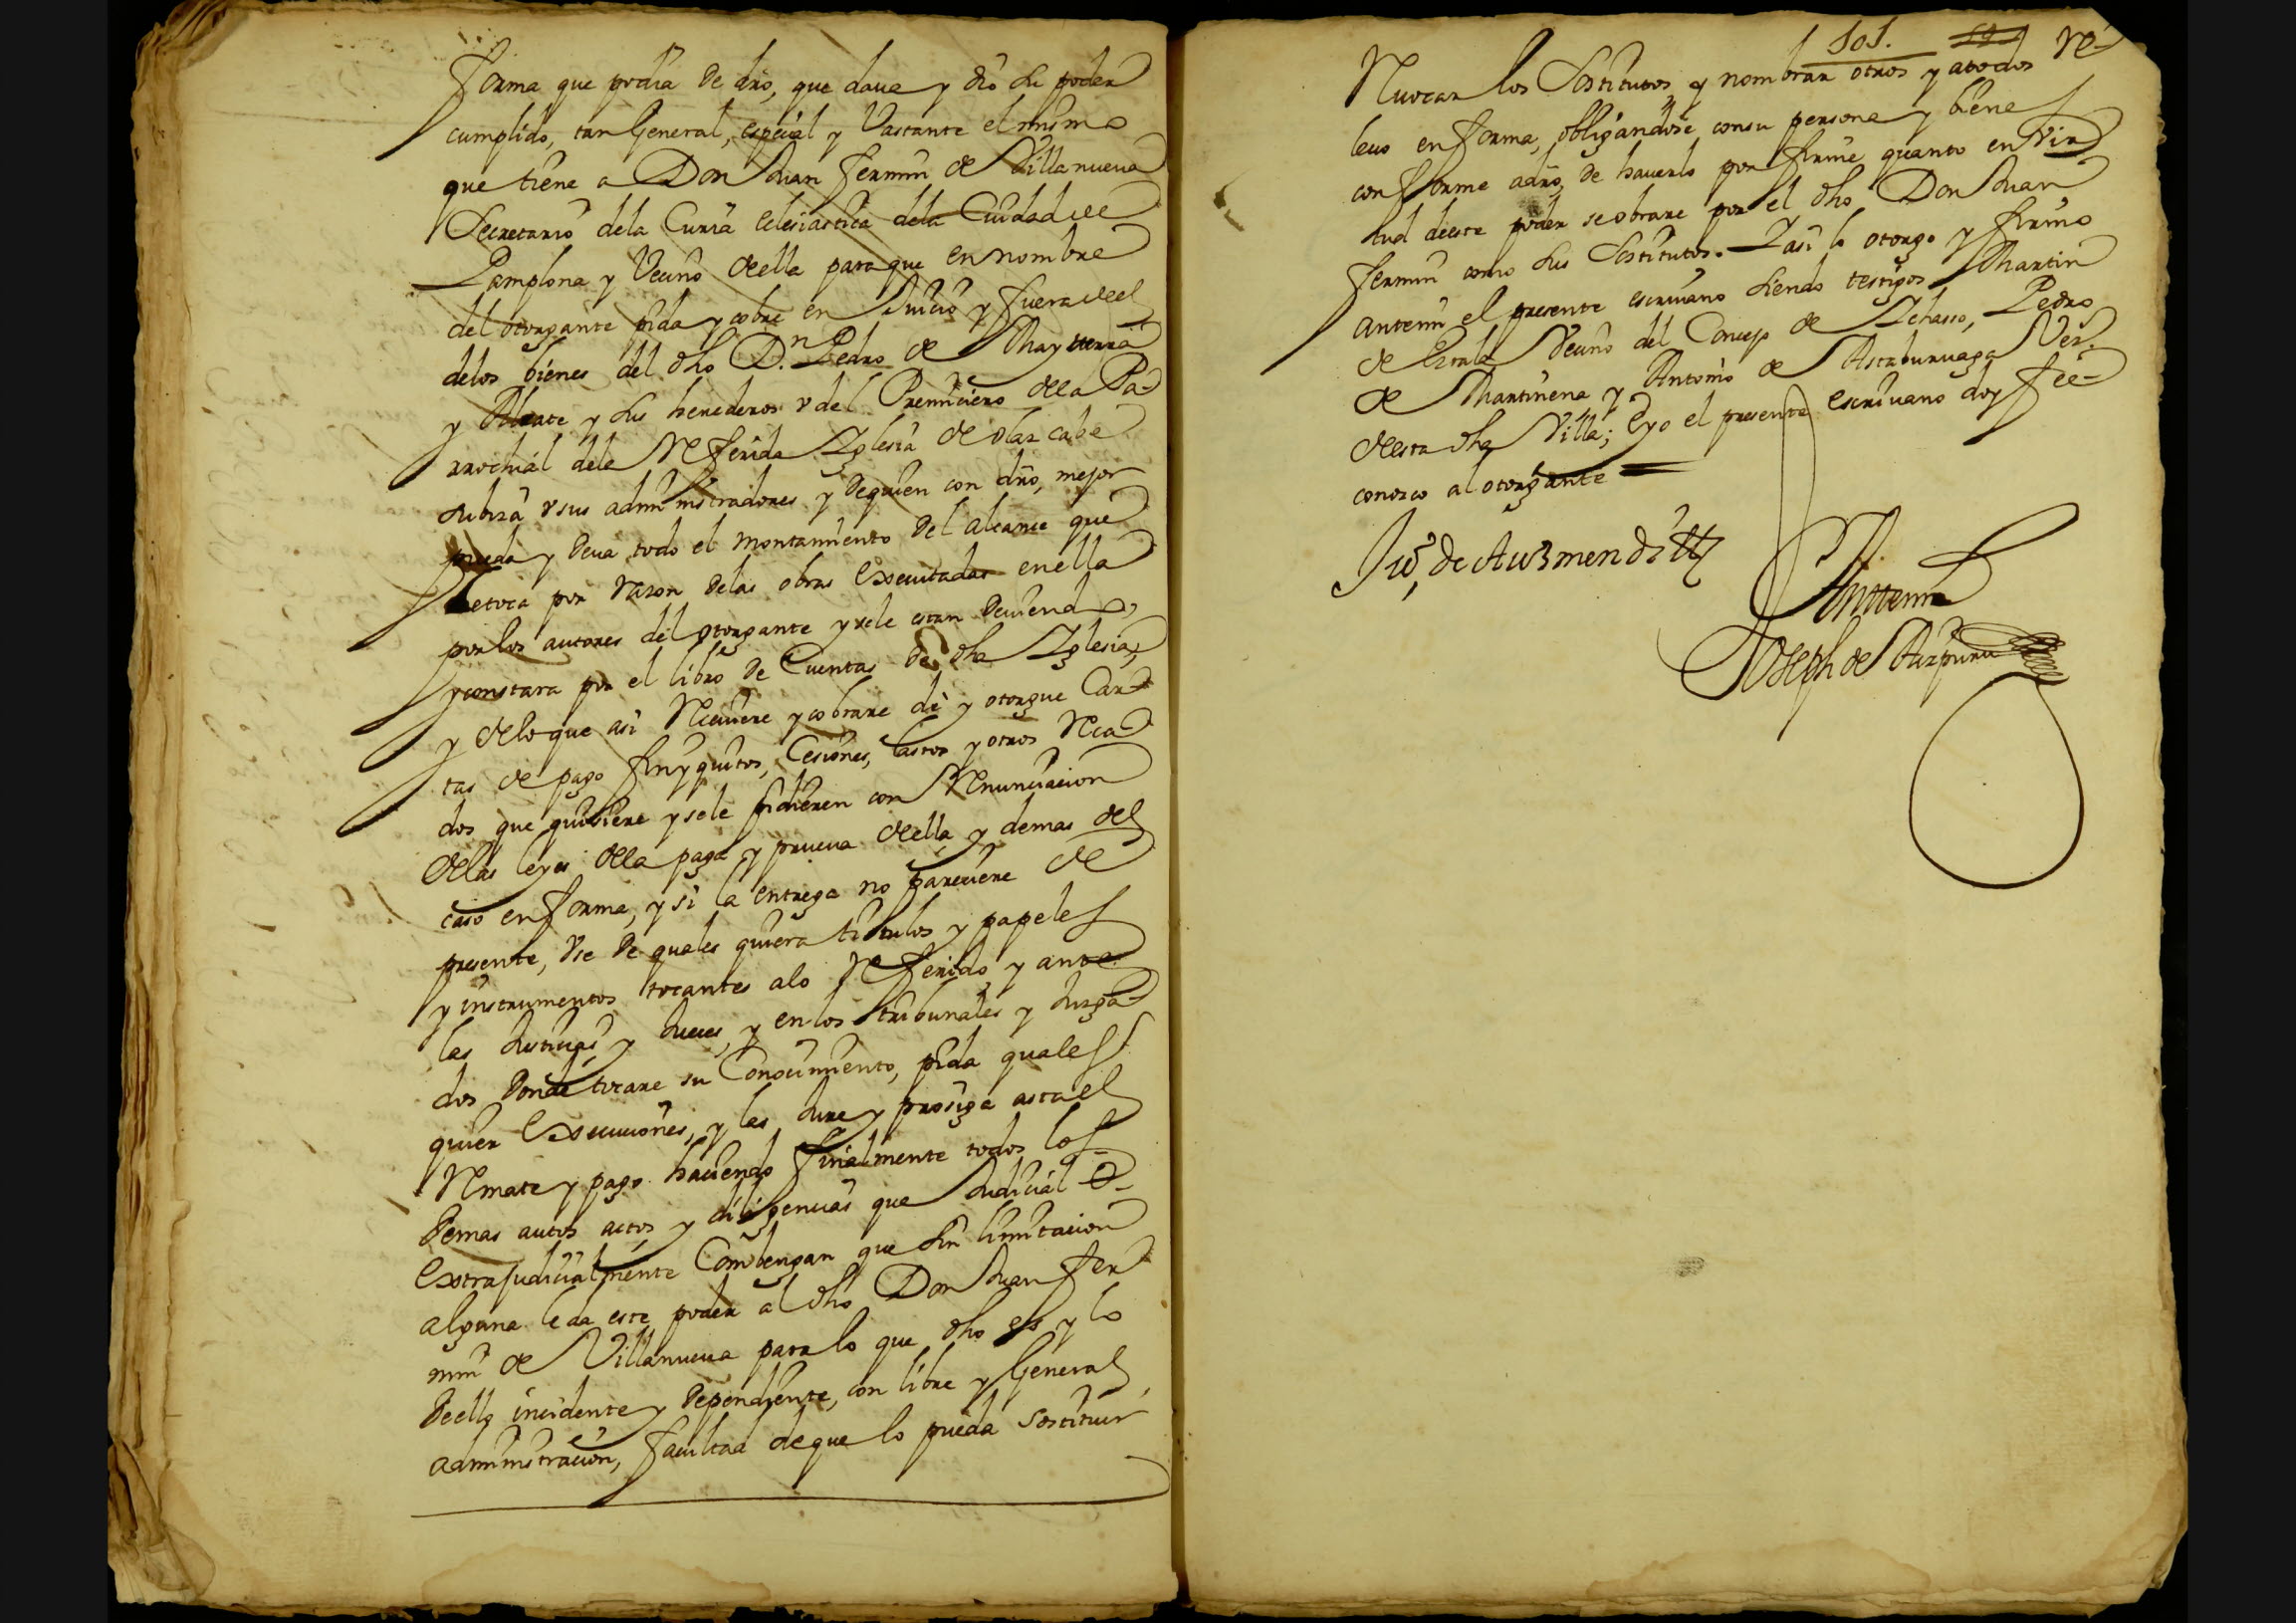 forma que podia de dro, que daua y dio su poder
cumplido, tan General, especial y Vastante el mismo
que tiene a Don Juan fermin de Villanueua
Secretario dela Curia eclesiastica dela Ciudad de
Pamplona y Vecino de ella para que en nombre
del otorgante pida y cobre en Juicio y fuera deel
delos bienes del dho Dn. Pedro de Mayterra
y Olleate y sus herederos v del Primiciero dela Pa
rrochial dela Referida Yglesia de olazcabe
v sus administradores y de quien con dro, mejor
pueda y Deua todo el montamiento del alcance que
letoca por Razon delas obras Executadas enella
por los autores del otorgante y sele estan deuiendo,
y constara por el libro de Cuentas de dha Yglesia,
y delo que asi Reciuiere y cobrare de y otorgue Car
tas de pago finyquitos, Cesiones, lastos y otros Rca
dos que quisiere y sele pidieren con Renunciacion
delas leyes dela paga y prueua de ella, y demas del
caso enforma, y si la entrega no pareciere de
presente, Vse de quales quiera titulos y papeles
y instrumentos tocantes alo Referido, y ante
las Justicias y Jueces, y enlos tribunales y Juzga
dos Donde tocare su Conocimiento, pida quales
quier Execuciones, y las Jure y prosiga asta el
Remate y pago haciendo finalmente todos los
Demas autos actos, y diligencias que Judicial o
extrajudicialmente Combengan que sin limitacion
alguna le da este poder al dho Don Juan fer
min de Villanueua para lo que dho es y lo
Deello incidente y Dependiente, con libre y General
administracion, facultad deque lo pueda sostituir
101.
Reuocar los Sostitutos, y nombrar otros y atodos Re
leuo enforma, obligandose consu persona y bienes
conforme adro, de hauerlo por firme quanto en Vir
tud deeste poder se obrare por el dho Don Juan
fermin como sus Sostitutos. Y asi lo otorgo y firmo
antemi el presente escriuano siendo testigos Martin
de Vecino del Concejo de Pedro
de Martinena y Antonio de Astaburuaga Vez.
de esta dha Villa; E yo el presente escriuano doy fee
conozco al otorgante
Ju, de Auzmendi
Anttemi
Joseph de Aizpuru